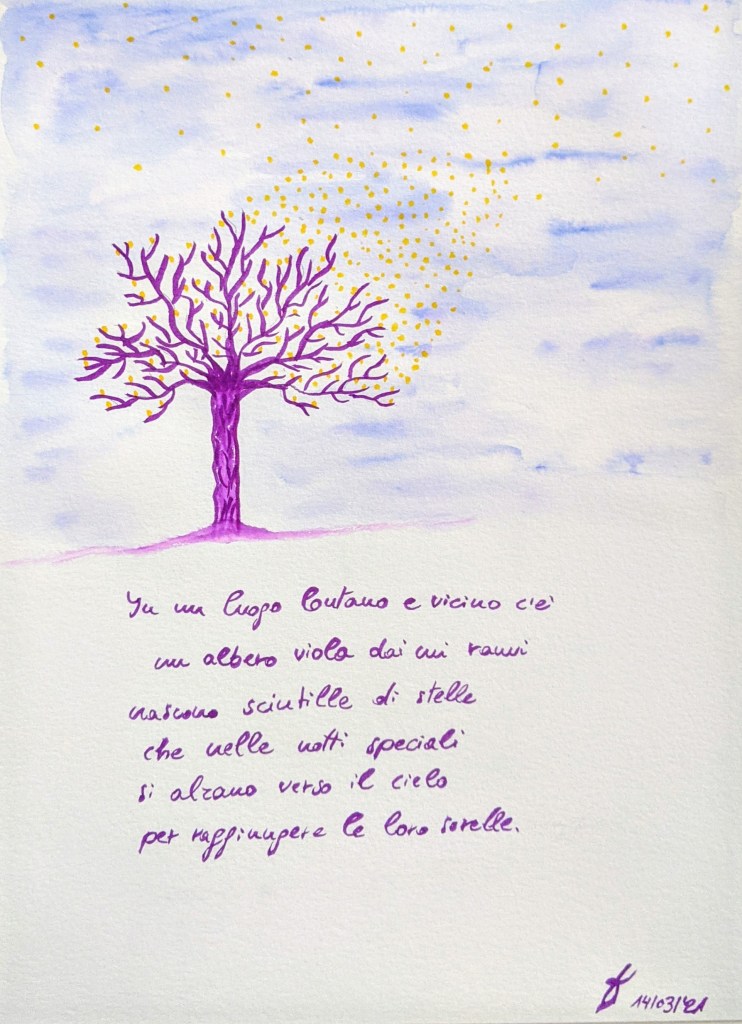 In un luogo lontano e vicino c'è
un albero viola dai cui rami
nascono scintille di stelle
che nelle notti speciali
si alzano verso il cielo
per raggiungere le loro sorelle.
14/03/21